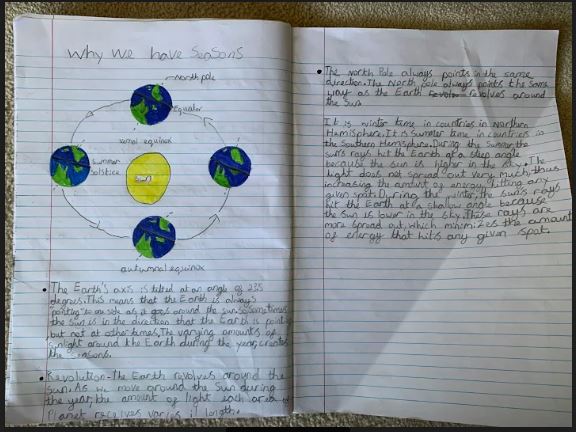 Why we have Seasons
North pole
Equator
vernal equinox
Summer
solstice
Sun
autumnal equinox
• The Earth's axis is tilted at an angle of 23.5
degrees. This means that the Earth is always
"pointing" to one side as it goes around the sun. So, sometimes
the sun is in the direction that the Earth is pointing
but not at other times. The varying amounts of
sunlight around the Earth during the year, creates
the Seasons.
• Revolution - The Earth revolves around the
Sun. As we move around the Sun during
the year, the amount of light each area
Planet receives varies length.
• The North Pole always points in the same
direction. The North pole always points the same
way as the Earth revolves around
the Sun.
It is winter time in countries in Northern
Hemisphere. It is summer time in countries in
the Southern Hemisphere. During the summer, the
sun's rays hit the Earth at a steep angle
because the sun is higher in the sky. The
light does not spread out very much, thus
increasing the amount of energy hitting any
given spot. During the winter, the sun's rays
hit the Earth at a shallow angle because
the Sun is lower in the sky. These rays are
more spread out, which minimizes the amount
of energy that hits any given spot.